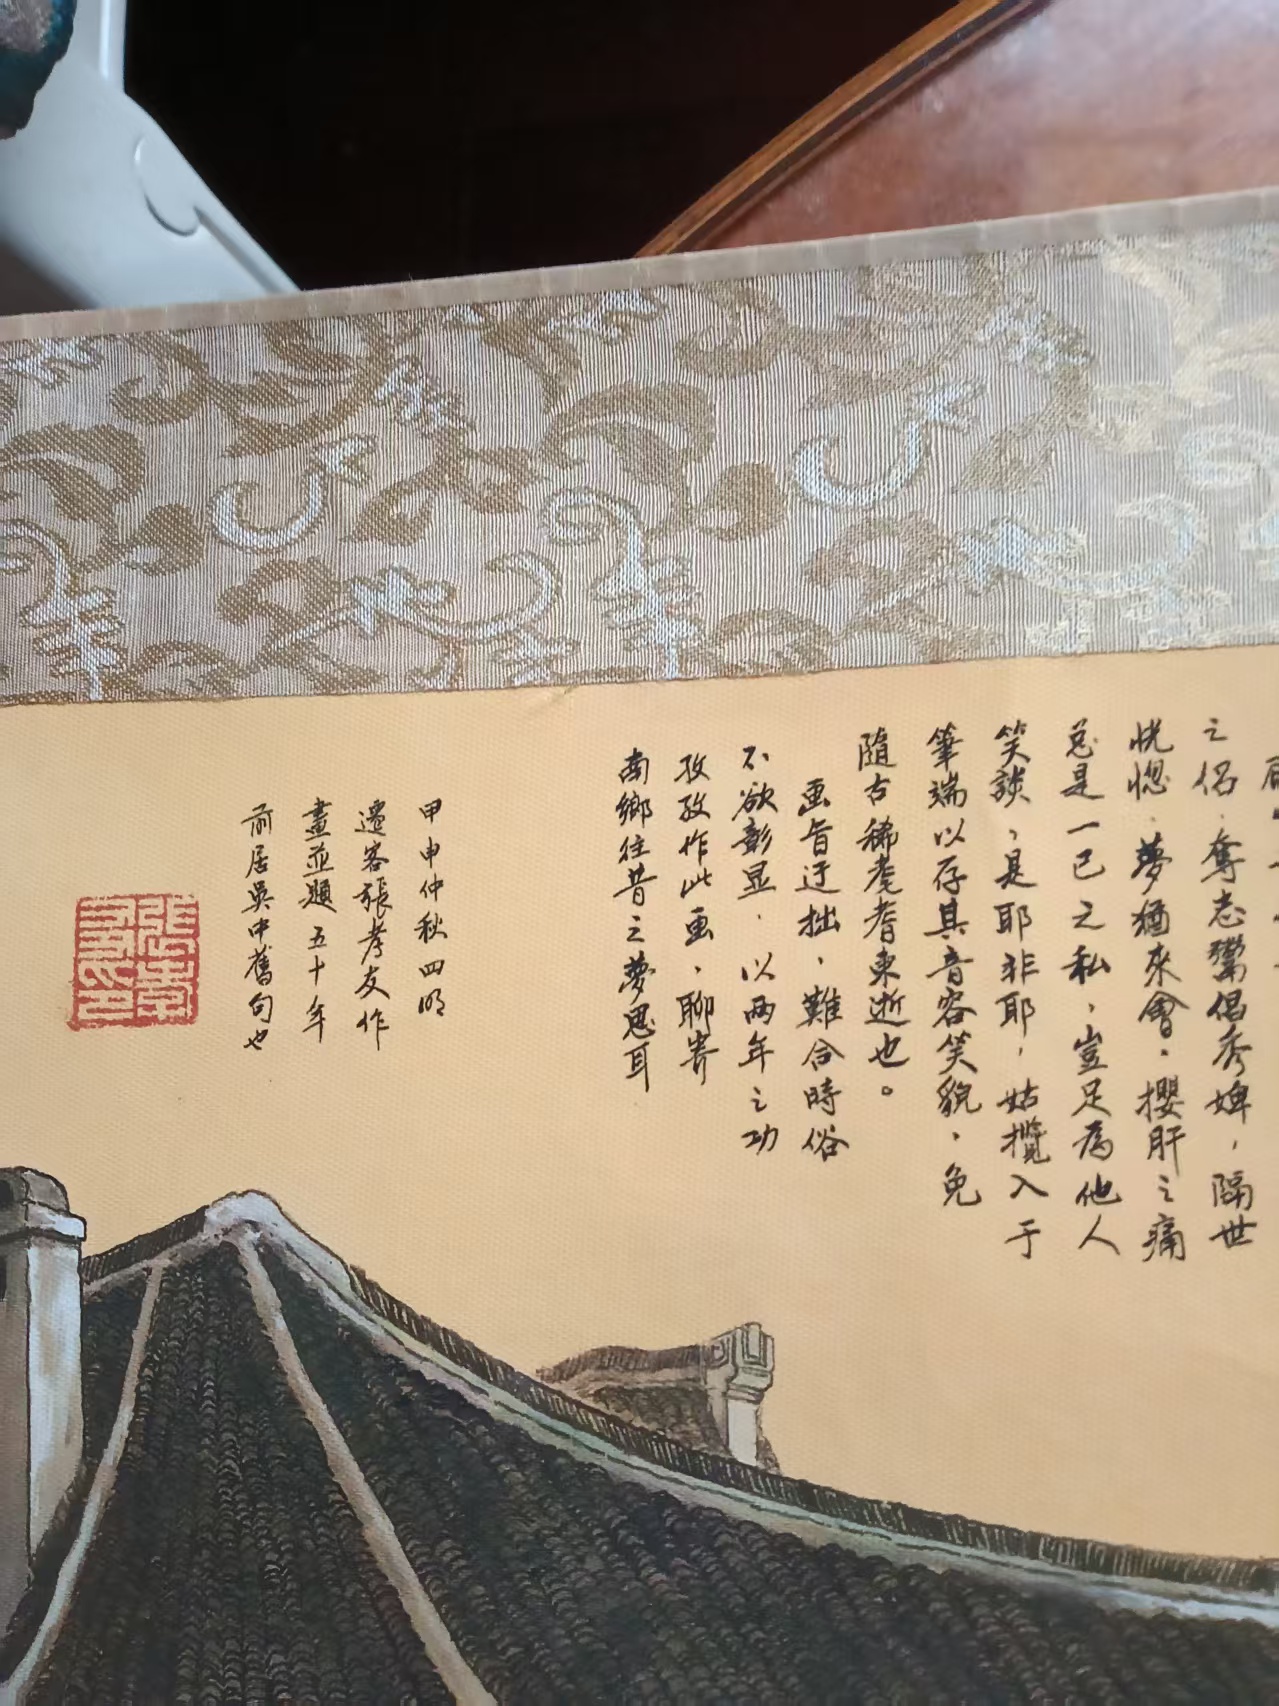 之侣，奪志鬻倡秀婢，隔世
恍惚，夢猶來會。攖肝之痛
总是一已之私，豈足為他人
笑談，是耶非耶，姑攬入于
筆端以存其音容笑貌，免
隨古稀耄耆東逝也。
画旨迂拙，難合時俗
不欲彰显，以兩年之功
孜孜作此画，聊寄
南鄉往昔之夢思耳
甲申仲秋四明
遷客張孝友作
畫並題五十年
前居吳中舊句也